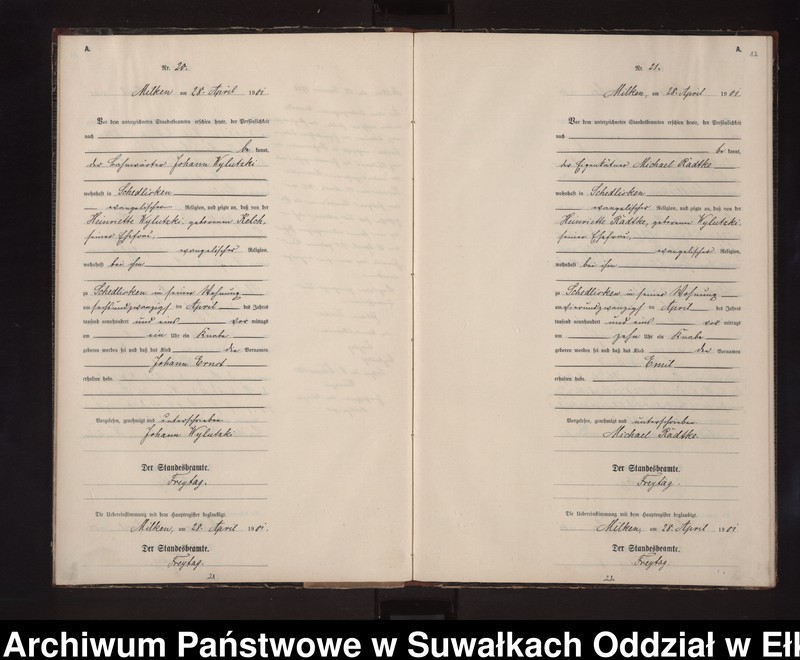 A.
Nr. 20.
Milken am 28. April 1901
Vor dem unterzeichneten Standesbeamten erschien heute, der Persönlichkeit
nach
be kannt,
der Bahnwärter Johann Wylutzki
wohnhaft in Schedlisken
evangelischer Religion, und zeigte an, daß von der
Heinriette Wylutzki, geborenen Kelch,
seiner Ehefrau,
evangelischer Religion,
wohnhaft bei ihm
zu Schedlisken in seiner Wohnung
am sechsundzwanzigsten April des Jahres
tausend neunhundert und eins vor mittags
um ein Uhr ein Knabe
geboren worden sei und daß das Kind den Vornamen
Johann Ernst
erhalten habe.
Vorgelesen, genehmigt und unterschrieben
Johann Wylutzki
Der Standesbeamte.
Freytag.
Die Uebereinstimmung mit dem Hauptregister beglaubigt.
Milken, am 28. April 1901.
Der Standesbeamte.
Freytag.
21
A.
12
Nr. 21.
Milken, am 28. April 1901
Vor dem unterzeichneten Standesbeamten erschien heute, der Persönlichkeit
nach
be kannt,
der Eigenkätner Michael Rädtke
wohnhaft in Schedlisken
evangelischer Religion, und zeigte an, daß von der
Heinriette Rädtke, geborenen Wylutzki,
seiner Ehefrau,
evangelischer Religion,
wohnhaft bei ihm
zu Schedlisken in seiner Wohnung
am vierundzwanzigsten April des Jahres
tausend neunhundert und eins vor mittags
um zehn Uhr ein Knabe
geboren worden sei und daß das Kind den Vornamen
Emil
erhalten habe.
Vorgelesen, genehmigt und unterschrieben
Michael Rädtke
Der Standesbeamte.
Freytag.
Die Uebereinstimmung mit dem Hauptregister beglaubigt.
Milken, am 28. April 1901
Der Standesbeamte.
Freytag.
22
Archiwum Państwowe w Suwałkach Oddział w Eł